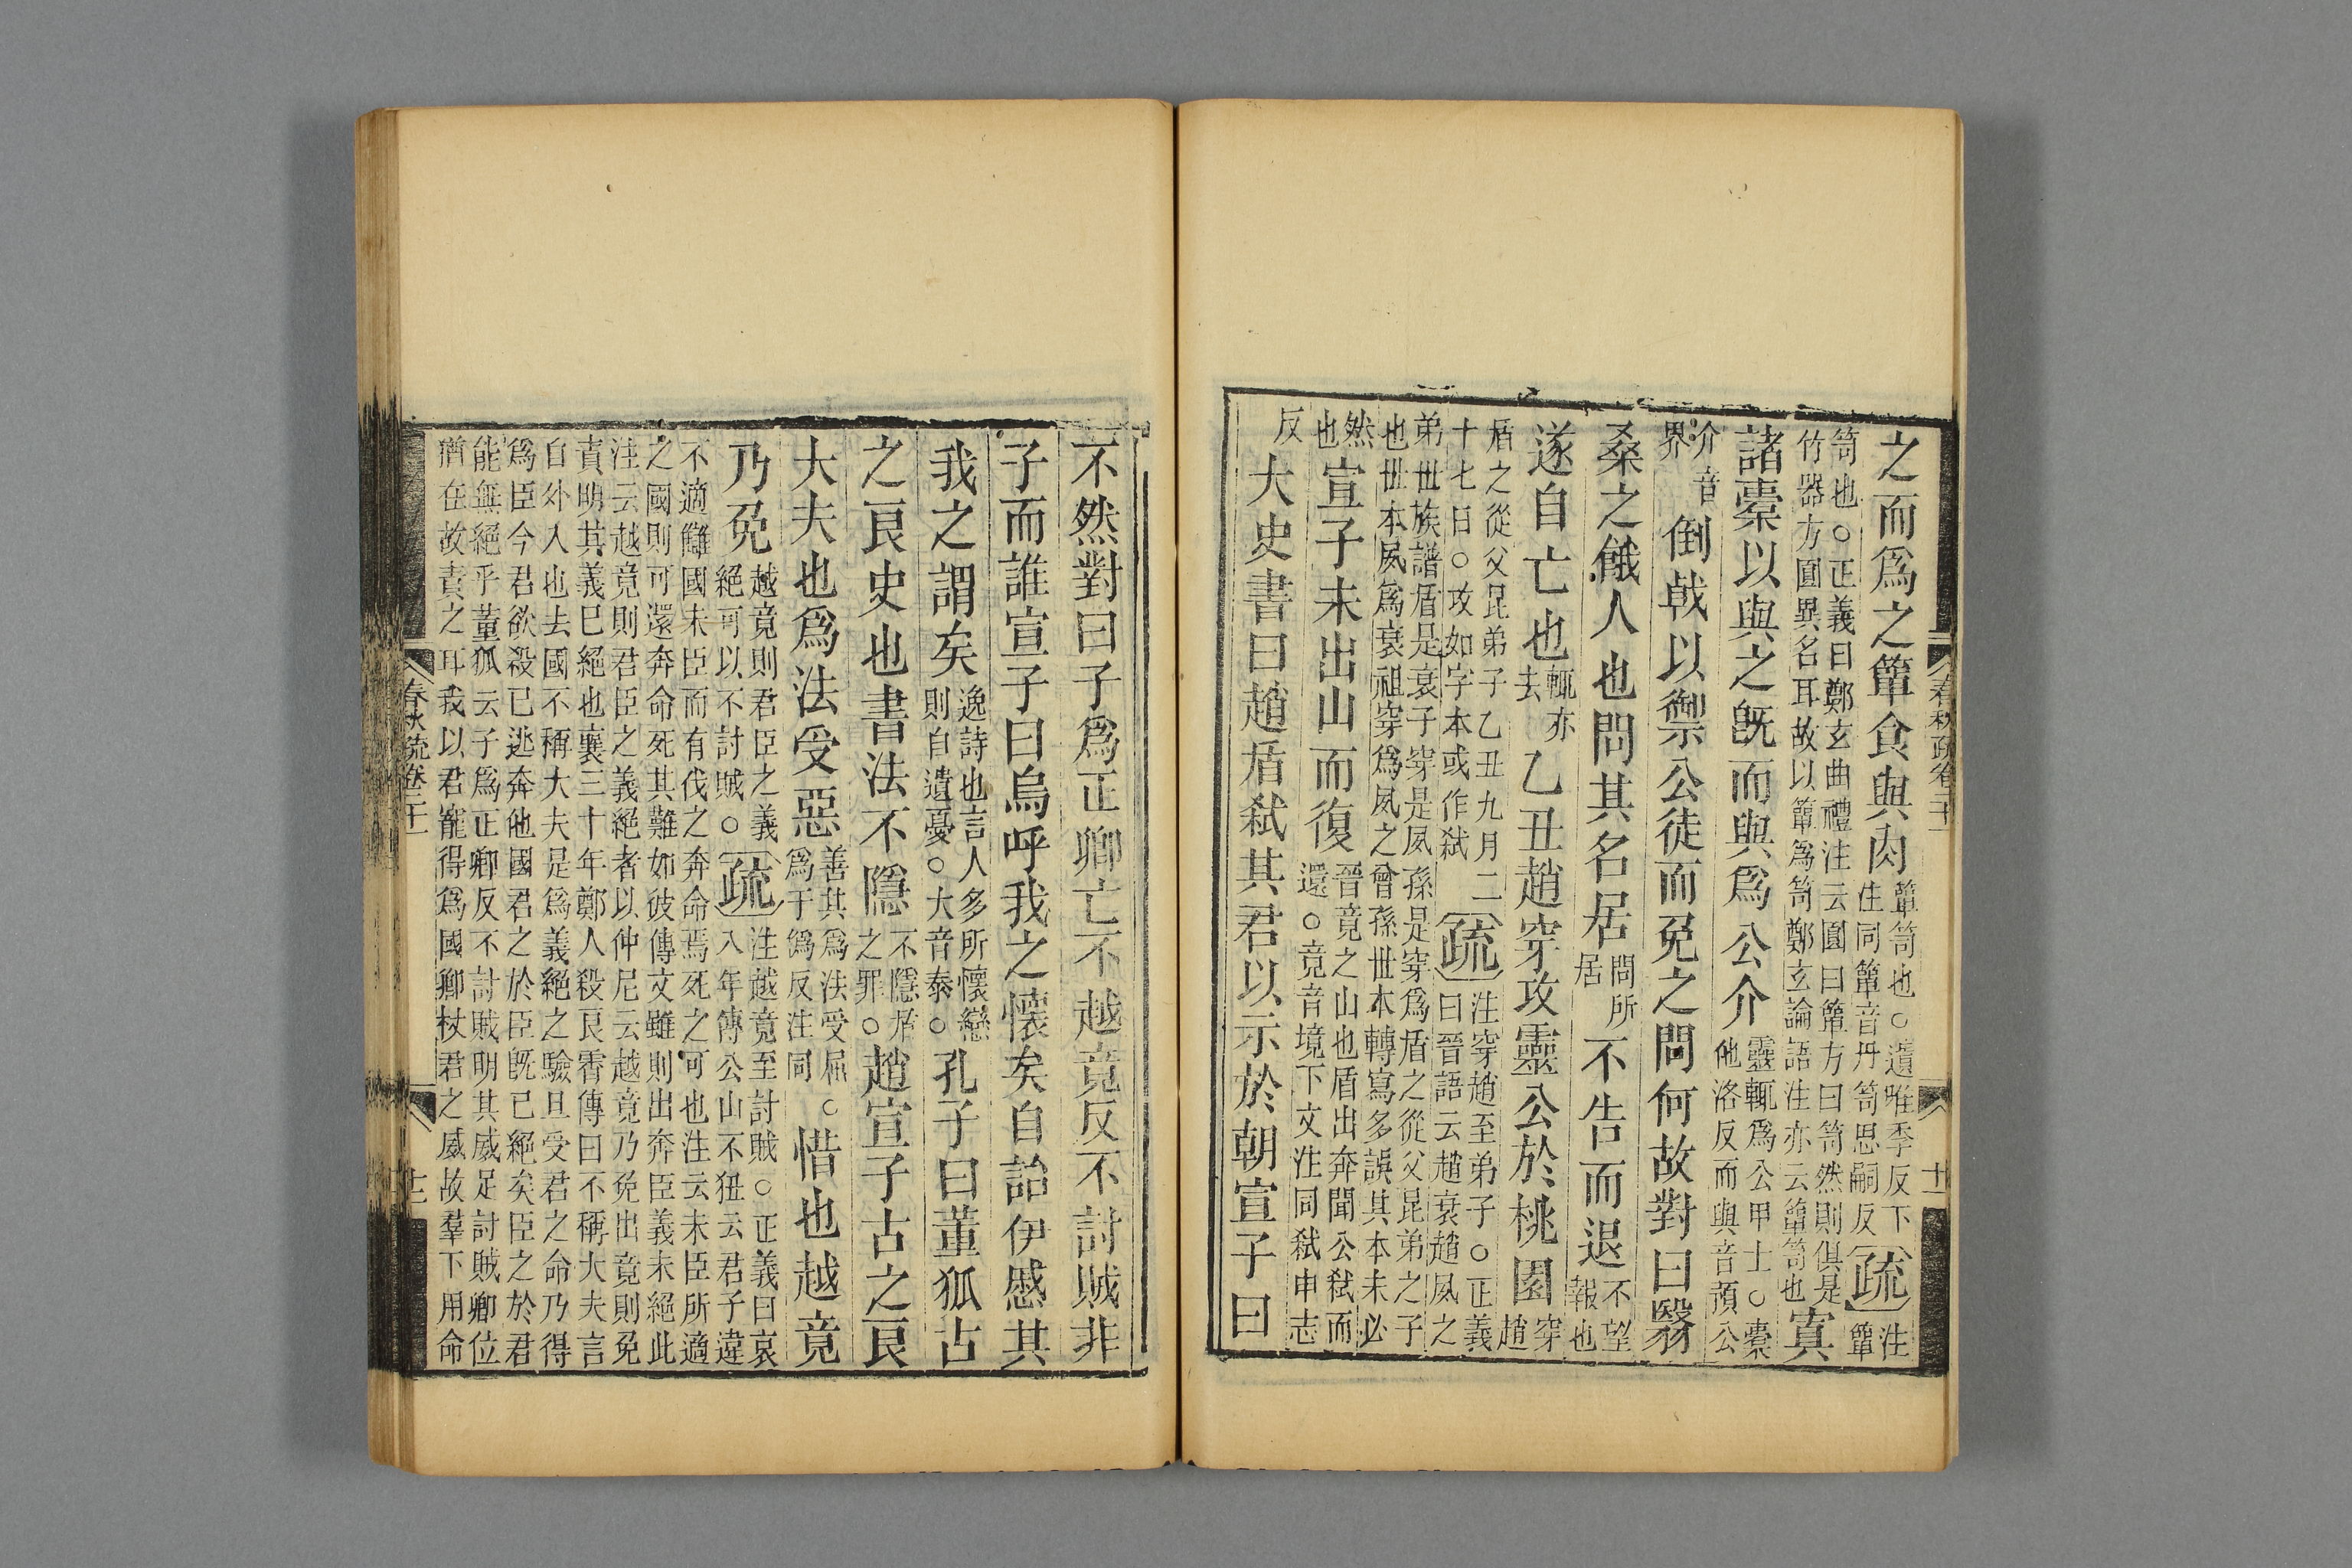 之而爲之簞食與肉簞笥也○遺唯季反下注同簞音丹笥思嗣反疏注簞
笥也○正義曰鄭玄曲禮注云圓曰簞方曰笥然則俱是竹器方圓異名耳故以簞爲笥鄭玄論語注亦云簞笥也寘
諸橐以與之旣而與爲公介靈輒爲公甲士○橐他洛反而與音預公
介音界倒戟以禦公徒而免之問何故對曰翳
桑之餓人也問其名居問所居不告而退不望報也
遂自亡也輒亦去乙丑趙穿攻靈公於桃園穿趙
盾之從父昆弟子乙丑九月二十七日○攻如字本或作弑疏注穿趙至弟子○正義曰晉語云趙衰趙夙之
弟世族譜盾是衰子穿是夙孫是穿爲盾之從父昆弟之子也世本夙爲衰祖穿爲夙之曾孫世本轉寫多誤其本未必
然也宣子未出山而復晉竟之山也盾出奔聞公弑而還○竟音境下文注同弑申志
反大史書曰趙盾弑其君以示於朝宣子曰
春秋疏卷二十一 十一
不然對曰子爲正卿亡不越竟反不討賊非
子而誰宣子曰烏呼我之懷矣自詒伊慼其
我之謂矣逸詩也言人多所懷戀則自遺憂○大音泰○孔子曰董狐古
之良史也書法不隱不隱盾之罪○趙宣子古之良
大夫也爲法受惡善其爲法受屈○爲于僞反注同惜也越竟
乃免越竟則君臣之義絕可以不討賊○疏注越竟至討賊○正義曰哀八年傳公山不狃云君子違
不適讎國未臣而有伐之奔命焉死之可也注云未臣所適之國則可還奔命死其難如彼傳文雖則出奔臣義未絕此
注云越竟則君臣之義絕者以仲尼云越竟乃免出竟則免責明其義已絕也襄三十年鄭人殺良霄傳曰不稱大夫言
自外入也去國不稱大夫是爲義絕之驗且受君之命乃得爲臣今君欲殺已逃奔他國君之於臣旣已絕矣臣之於君
能無絕乎董狐云子爲正卿反不討賊明其威足討賊卿位猶在故責之耳我以君寵得爲國卿杖君之威故羣下用命
春秋疏卷二十一 十二